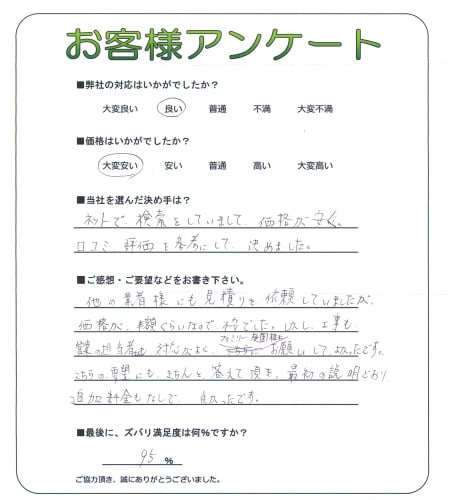 お客様アンケート
■弊社の対応はいかがでしたか？
大変良い 良い 普通 不満 大変不満
■価格はいかがでしたか？
大変安い 安い 普通 高い 大変高い
■当社を選んだ決め手は？
ネットで、検索をしていまして、価格が安く。
口コミ、評価を参考にして、決めました。
■ご感想・ご要望などをお書き下さい。
他の業者様にも見積りを依頼していましたが、
価格が、半額ぐらいなので、不安でした。しかし、工事も
営業の担当者も 対応がよく、 お願いして、よかったです。
こちらの要望にも、きちんと、答えて頂き、最初の説明どおり
追加料金もなしで、良かったです。
■最後に、ズバリ満足度は何％ですか？
95 ％
ご協力頂き、誠にありがとうございました。